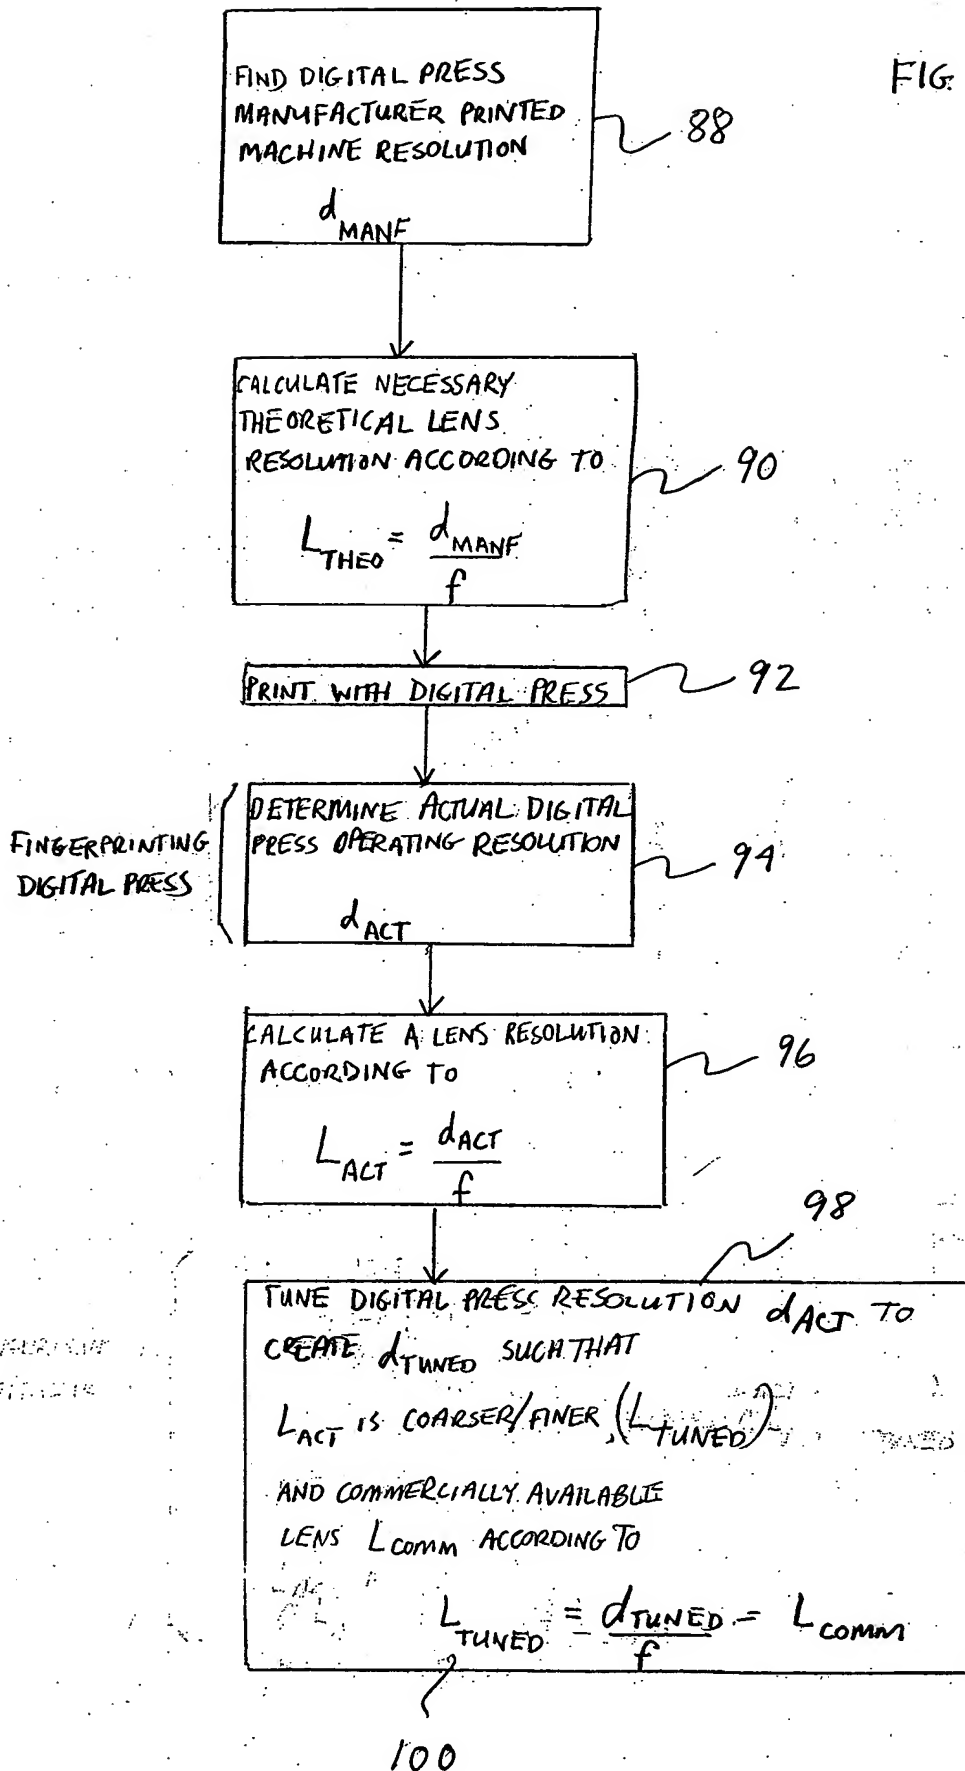 FIG
FIND DIGITAL PRESS
MANUFACTURER PRINTED
MACHINE RESOLUTION
d MANF
88
CALCULATE NECESSARY
THEORETICAL LENS
RESOLUTION ACCORDING TO
L THEO = d MANF / f
90
PRINT WITH DIGITAL PRESS
92
FINGERPRINTING
DIGITAL PRESS
DETERMINE ACTUAL DIGITAL
PRESS OPERATING RESOLUTION
d ACT
94
CALCULATE A LENS RESOLUTION
ACCORDING TO
L ACT = d ACT / f
96
98
TUNE DIGITAL PRESS RESOLUTION d ACT TO
CREATE d TUNED SUCH THAT
L ACT IS COARSER/FINER, (L TUNED)
AND COMMERCIALLY AVAILABLE
LENS L COMM ACCORDING TO
L TUNED = d TUNED / f = L COMM
100